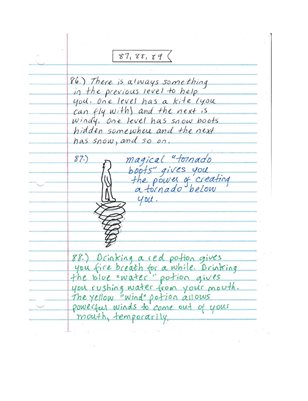 87, 88, 89
86.) There is always something
in the previous level to help
you. One level has a kite (you
can fly with) and the next is
windy. One level has snow boots
hidden somewhere and the next
has snow, and so on.
87.) magical "tornado
boots" gives you
the power of creating
a tornado below
you.
88.) Drinking a red potion gives
you fire breath for a while. Drinking
the blue "water" potion gives
you rushing water from your mouth.
The yellow "wind" potion allows
powerful winds to come out of your
mouth, temporarily.